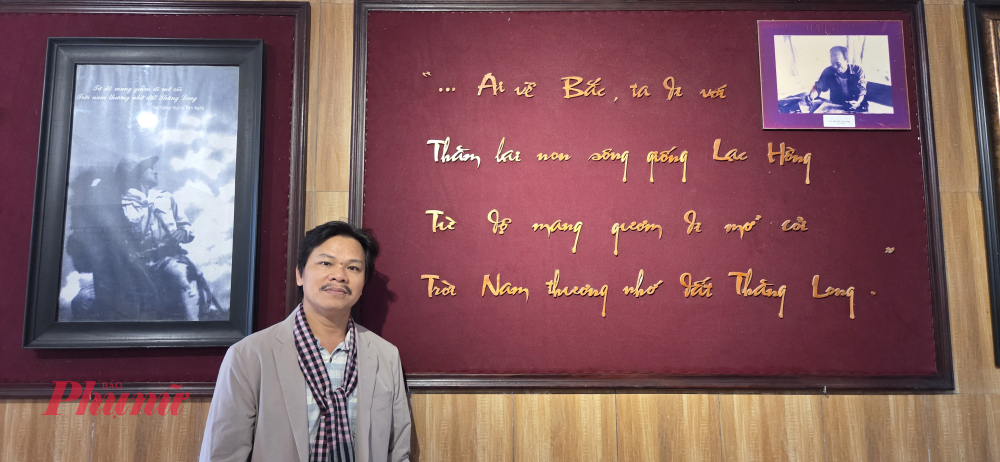 Từ độ mang gươm đi mở cõi
Trời nam thương nhớ đất Thăng Long
"... Ai về Bắc, ta đi với
Thăm lại non sông giống Lạc Hồng
Từ độ mang gươm đi mở cõi
Trời Nam thương nhớ đất Thăng Long.
"
BÁO
Phụ nữ